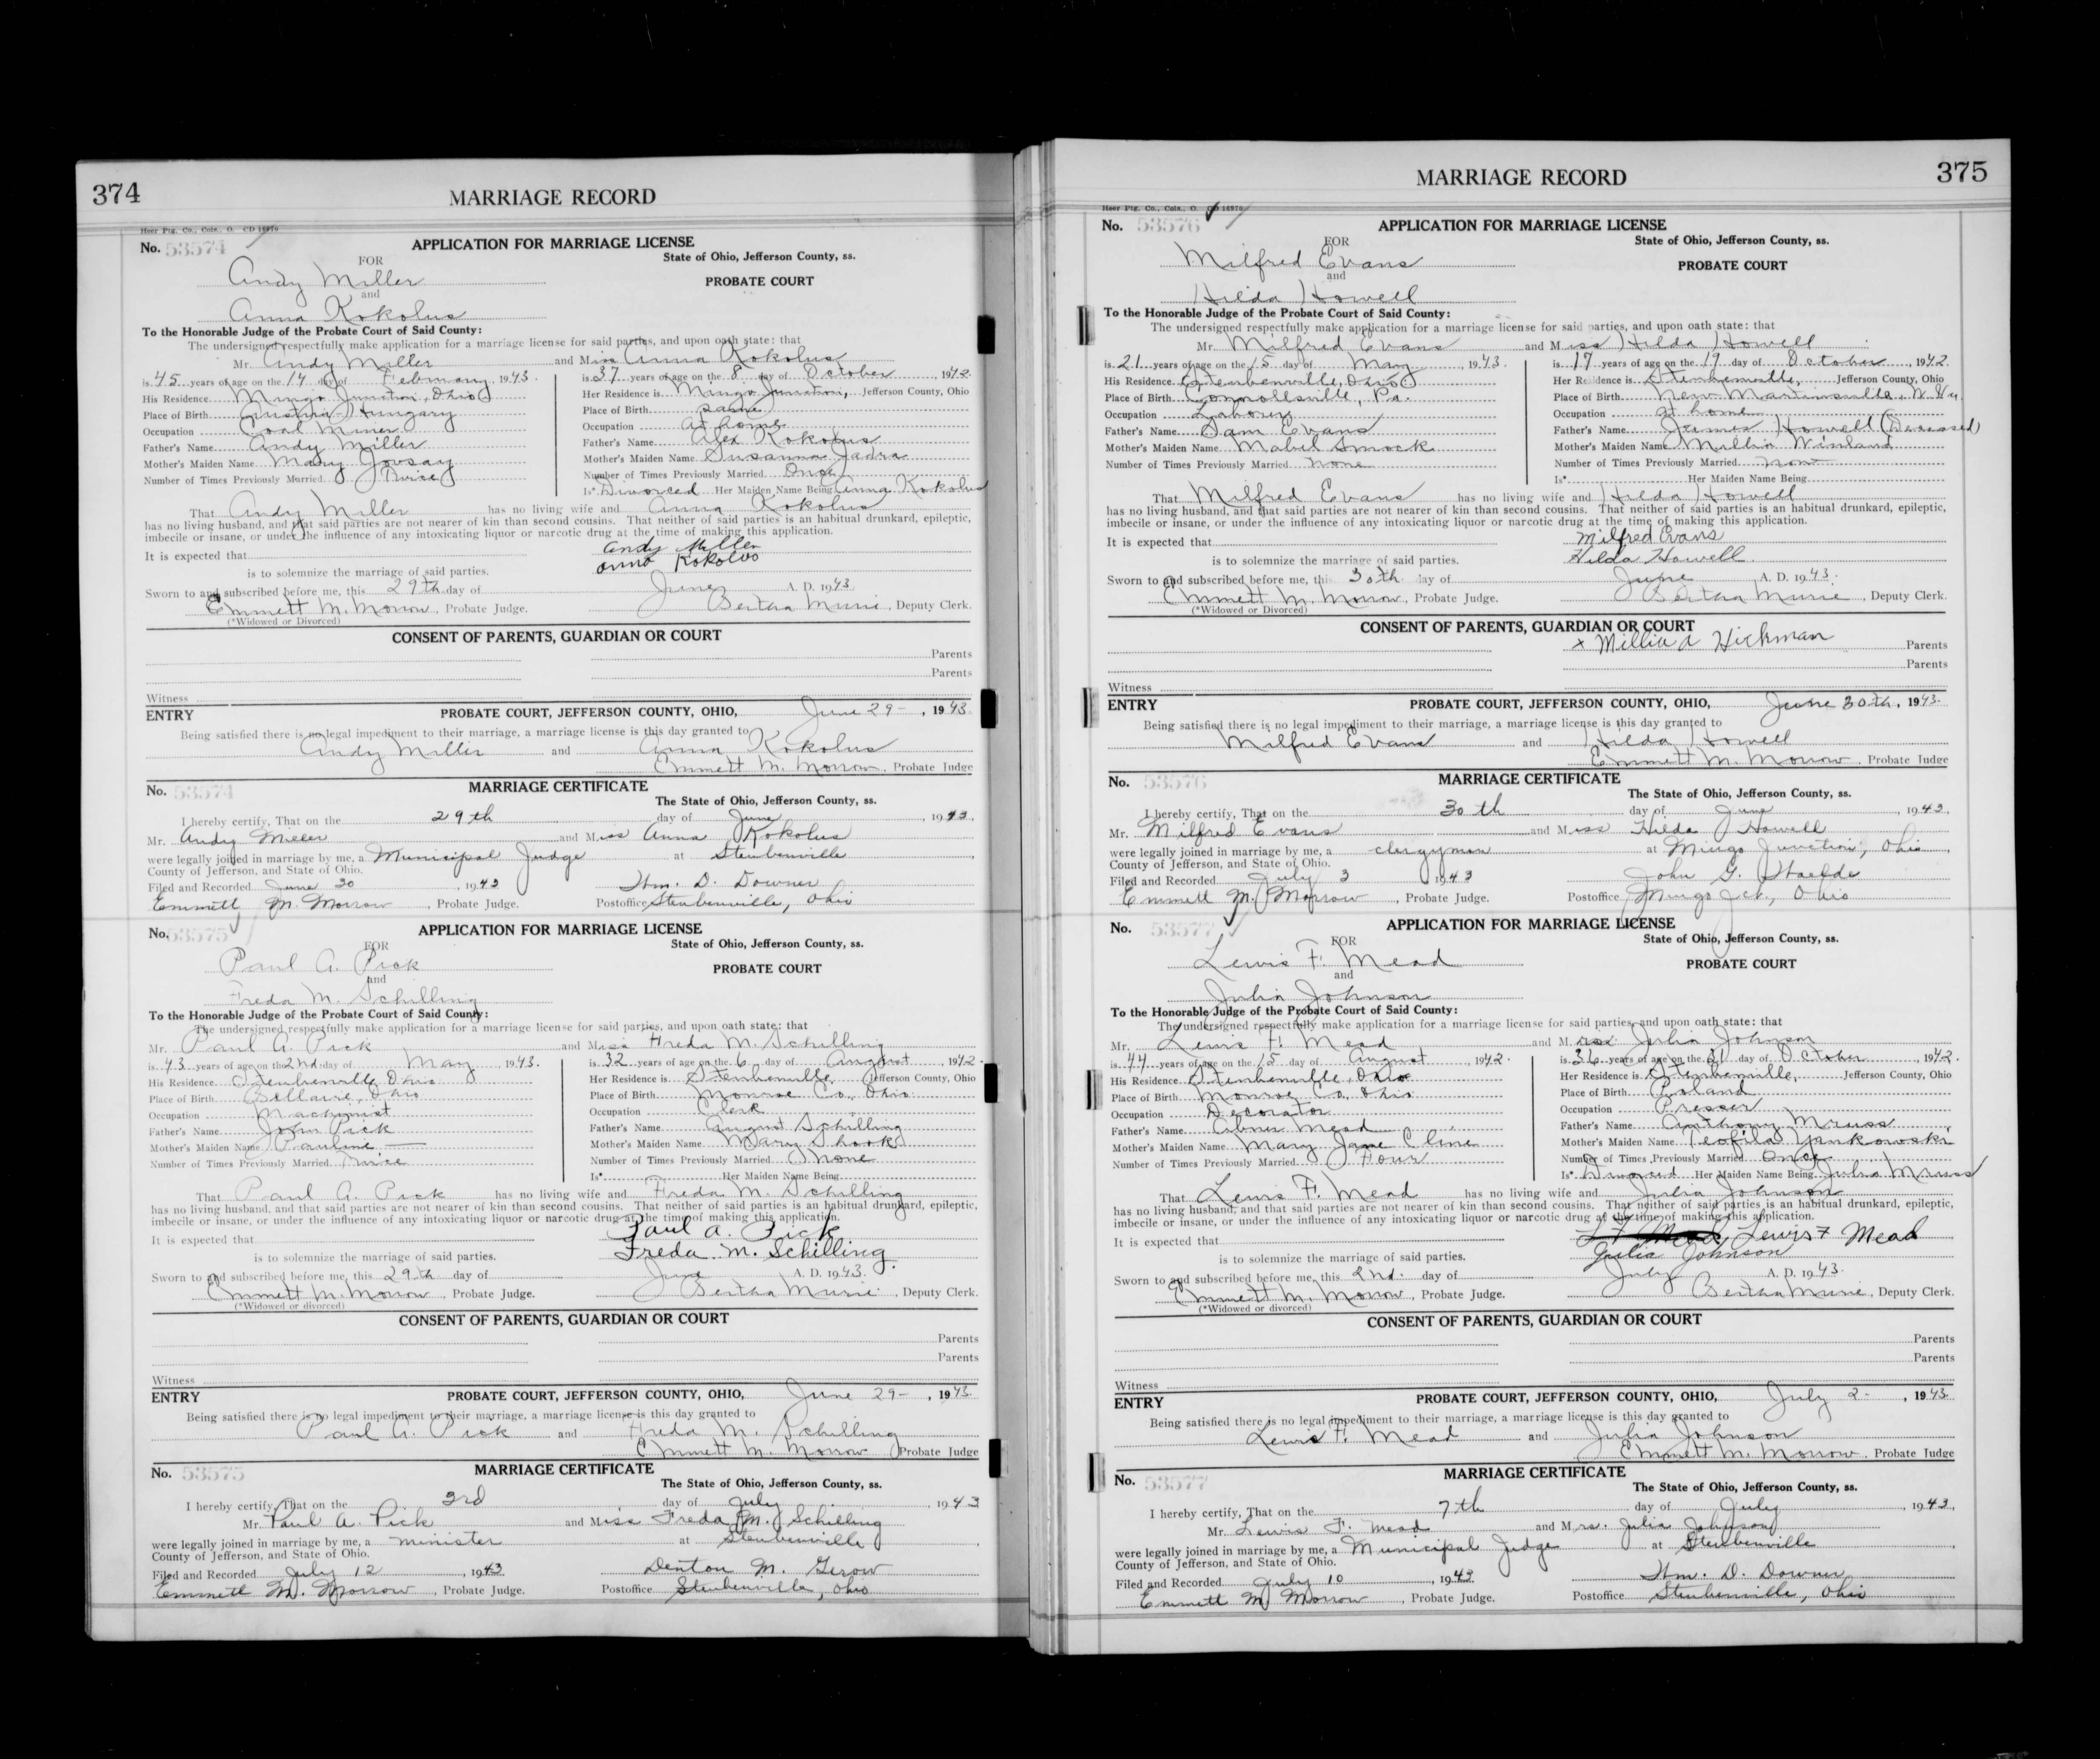 374
MARRIAGE RECORD
Heer Ptg. Co., Cols., O. CD 16970
No. 53574
APPLICATION FOR MARRIAGE LICENSE
FOR
State of Ohio, Jefferson County, ss.
Andy Miller
PROBATE COURT
and
Anna Kokolus
To the Honorable Judge of the Probate Court of Said County:
The undersigned respectfully make application for a marriage license for said parties, and upon oath state: that
Mr. Andy Miller and Miss Anna Kokolus
is 45 years of age on the 14 day of February, 1943.
His Residence Mingo Junction, Ohio
Place of Birth Austria-Hungary
Occupation Coal Miner
Father's Name Andy Miller
Mother's Maiden Name Mary
Number of Times Previously Married Twice
is 37 years of age on the 8 day of October, 1942.
Her Residence is Mingo Junction, Jefferson County, Ohio
Place of Birth same
Occupation at home
Father's Name Alex Kokolus
Mother's Maiden Name Susanna
Number of Times Previously Married Once
Is* Divorced Her Maiden Name Being Anna Kokolus
That Andy Miller has no living wife and Anna Kokolus
has no living husband, and that said parties are not nearer of kin than second cousins. That neither of said parties is an habitual drunkard, epileptic,
imbecile or insane, or under the influence of any intoxicating liquor or narcotic drug at the time of making this application.
It is expected that
Andy Miller
Anna Kokolus
is to solemnize the marriage of said parties.
Sworn to and subscribed before me, this 29th day of June A. D. 1943
Emmett M. Morrow, Probate Judge. Bertha Murie, Deputy Clerk.
(*Widowed or Divorced)
CONSENT OF PARENTS, GUARDIAN OR COURT
Parents
Parents
Witness
ENTRY PROBATE COURT, JEFFERSON COUNTY, OHIO, June 29-, 1943
Being satisfied there is no legal impediment to their marriage, a marriage license is this day granted to
Andy Miller and Anna Kokolus
Emmett M. Morrow, Probate Judge
No. 53574 MARRIAGE CERTIFICATE
The State of Ohio, Jefferson County, ss.
I hereby certify, That on the 29th day of June, 1943.
Mr. Andy Miller and Miss Anna Kokolus
were legally joined in marriage by me, a Municipal Judge at Steubenville
County of Jefferson, and State of Ohio.
Filed and Recorded June 30, 1943 Wm. D. Downer
Emmett M. Morrow, Probate Judge. Postoffice Steubenville, Ohio
No. 53575
APPLICATION FOR MARRIAGE LICENSE
FOR
State of Ohio, Jefferson County, ss.
Paul A. Pick
PROBATE COURT
and
Freda M. Schilling
To the Honorable Judge of the Probate Court of Said County:
The undersigned respectfully make application for a marriage license for said parties, and upon oath state: that
Mr. Paul A. Pick and Miss Freda M. Schilling
is 43 years of age on the 2nd day of May, 1943.
His Residence Steubenville Ohio
Place of Birth Bellaire, Ohio
Occupation Machinist
Father's Name John Pick
Mother's Maiden Name Pauline —
Number of Times Previously Married Twice
is 32 years of age on the 6 day of August, 1942.
Her Residence is Steubenville, Jefferson County, Ohio
Place of Birth Monroe Co., Ohio
Occupation Clerk
Father's Name August Schilling
Mother's Maiden Name Mary Shook
Number of Times Previously Married None
Is* Her Maiden Name Being
That Paul A. Pick has no living wife and Freda M. Schilling
has no living husband, and that said parties are not nearer of kin than second cousins. That neither of said parties is an habitual drunkard, epileptic,
imbecile or insane, or under the influence of any intoxicating liquor or narcotic drug at the time of making this application.
It is expected that
Paul A. Pick
Freda M. Schilling
is to solemnize the marriage of said parties.
Sworn to and subscribed before me, this 29th day of June A. D. 1943.
Emmett M. Morrow, Probate Judge. Bertha Murie, Deputy Clerk.
(*Widowed or divorced)
CONSENT OF PARENTS, GUARDIAN OR COURT
Parents
Parents
Witness
ENTRY PROBATE COURT, JEFFERSON COUNTY, OHIO, June 29-, 1943
Being satisfied there is no legal impediment to their marriage, a marriage license is this day granted to
Paul A. Pick and Freda M. Schilling
Emmett M. Morrow Probate Judge
No. 53575 MARRIAGE CERTIFICATE
The State of Ohio, Jefferson County, ss.
I hereby certify, That on the 3rd day of July, 1943
Mr. Paul A. Pick and Miss Freda M. Schilling
were legally joined in marriage by me, a minister at Steubenville
County of Jefferson, and State of Ohio.
Filed and Recorded July 12, 1943 Denton M. Gerow
Emmett M. Morrow, Probate Judge. Postoffice Steubenville, Ohio
375
MARRIAGE RECORD
Heer Ptg. Co., Cols., O. CD 16970
No. 53576
APPLICATION FOR MARRIAGE LICENSE
FOR
State of Ohio, Jefferson County, ss.
Milfred Evans
PROBATE COURT
and
Hilda Howell
To the Honorable Judge of the Probate Court of Said County:
The undersigned respectfully make application for a marriage license for said parties, and upon oath state: that
Mr. Milfred Evans and Miss Hilda Howell
is 21 years of age on the 15 day of May, 1943.
His Residence Steubenville, Ohio
Place of Birth Connellsville, Pa.
Occupation Laborer
Father's Name Sam Evans
Mother's Maiden Name Mabel Smock
Number of Times Previously Married none
is 17 years of age on the 19 day of October, 1942.
Her Residence is Steubenville, Jefferson County, Ohio
Place of Birth New Martinsville, W. Va.
Occupation at home
Father's Name James Howell (Deceased)
Mother's Maiden Name Millia Winland
Number of Times Previously Married none
Is* Her Maiden Name Being
That Milfred Evans has no living wife and Hilda Howell
has no living husband, and that said parties are not nearer of kin than second cousins. That neither of said parties is an habitual drunkard, epileptic,
imbecile or insane, or under the influence of any intoxicating liquor or narcotic drug at the time of making this application.
It is expected that
Milfred Evans
Hilda Howell
is to solemnize the marriage of said parties.
Sworn to and subscribed before me, this 30th day of June A. D. 1943.
Emmett M. Morrow, Probate Judge. Bertha Murie, Deputy Clerk.
(*Widowed or Divorced)
CONSENT OF PARENTS, GUARDIAN OR COURT
x Millia A Hickman Parents
Parents
Witness
ENTRY PROBATE COURT, JEFFERSON COUNTY, OHIO, June 30th, 1943.
Being satisfied there is no legal impediment to their marriage, a marriage license is this day granted to
Milfred Evans and Hilda Howell
Emmett M. Morrow, Probate Judge
No. 53576 MARRIAGE CERTIFICATE
The State of Ohio, Jefferson County, ss.
I hereby certify, That on the 30th day of June 1943.
Mr. Milfred Evans and Miss Hilda Howell
were legally joined in marriage by me, a clergyman at Mingo Junction, Ohio
County of Jefferson, and State of Ohio.
Filed and Recorded July 3 1943 John G.
Emmett M. Morrow, Probate Judge. Postoffice Mingo Jct., Ohio
No. 53577
APPLICATION FOR MARRIAGE LICENSE
FOR
State of Ohio, Jefferson County, ss.
Lewis F. Mead
PROBATE COURT
and
Julia Johnson
To the Honorable Judge of the Probate Court of Said County:
The undersigned respectfully make application for a marriage license for said parties, and upon oath state: that
Mr. Lewis F. Mead and Mrs. Julia Johnson
is 44 years of age on the 15 day of August, 1942.
His Residence Steubenville, Ohio
Place of Birth Monroe Co., Ohio
Occupation Decorator
Father's Name Abner Mead
Mother's Maiden Name Mary Jane Cline
Number of Times Previously Married Four
is 36 years of age on the 21 day of October, 1942.
Her Residence is Steubenville, Jefferson County, Ohio
Place of Birth Poland
Occupation Presser
Father's Name Anthony Mruss
Mother's Maiden Name Teofila Yankowski
Number of Times Previously Married Once
Is* Divorced Her Maiden Name Being Julia Mruss
That Lewis F. Mead has no living wife and Julia Johnson
has no living husband, and that said parties are not nearer of kin than second cousins. That neither of said parties is an habitual drunkard, epileptic,
imbecile or insane, or under the influence of any intoxicating liquor or narcotic drug at the time of making this application.
It is expected that
Lewis F Mead
Julia Johnson
is to solemnize the marriage of said parties.
Sworn to and subscribed before me, this 2nd. day of July A. D. 1943.
Emmett M. Morrow, Probate Judge. Bertha Murie, Deputy Clerk.
(*Widowed or divorced)
CONSENT OF PARENTS, GUARDIAN OR COURT
Parents
Parents
Witness
ENTRY PROBATE COURT, JEFFERSON COUNTY, OHIO, July 2-, 1943
Being satisfied there is no legal impediment to their marriage, a marriage license is this day granted to
Lewis F. Mead and Julia Johnson
Emmett M. Morrow, Probate Judge
No. 53577 MARRIAGE CERTIFICATE
The State of Ohio, Jefferson County, ss.
I hereby certify, That on the 7th day of July, 1943.
Mr. Lewis F. Mead and Mrs. Julia Johnson
were legally joined in marriage by me, a Municipal Judge at Steubenville
County of Jefferson, and State of Ohio.
Filed and Recorded July 10, 1943. Wm. D. Downer
Emmett M. Morrow, Probate Judge. Postoffice Steubenville, Ohio